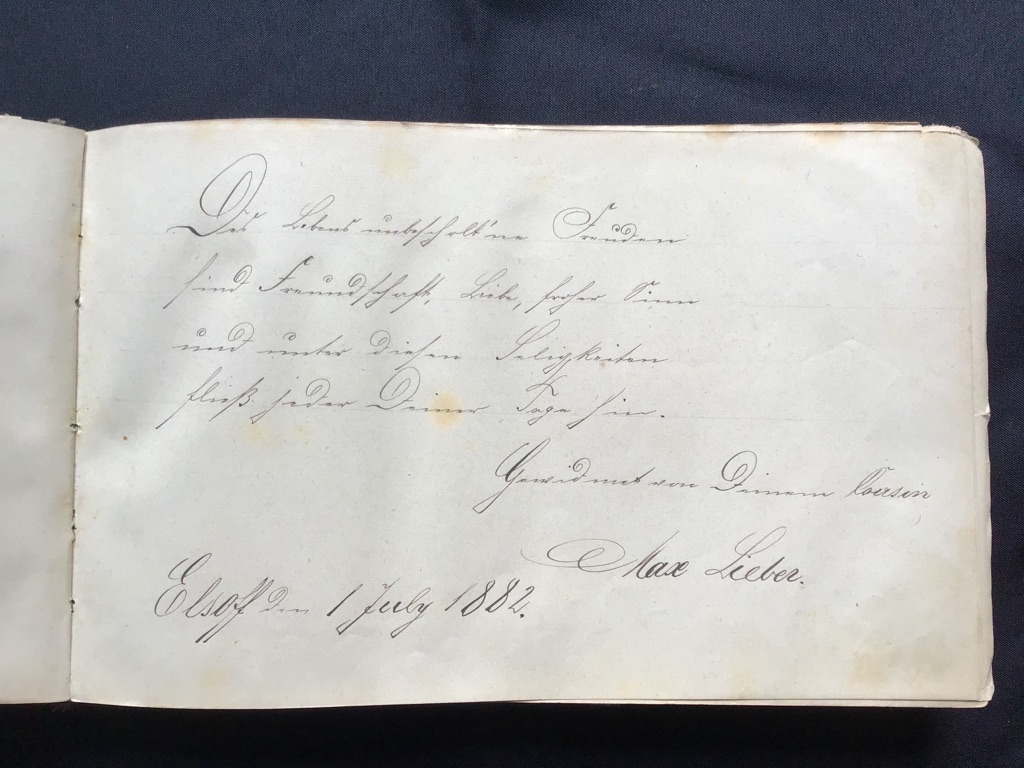 Des Lebens unbescholt'ne Freuden
sind Freundschaft, Liebe, froher Sinn
und unter diesen Seligkeiten
fließ' jeder Deiner Tage hin.
Gewidmet von Deinem Cousin
Max Lieber.
Elsoff den 1 July 1882.